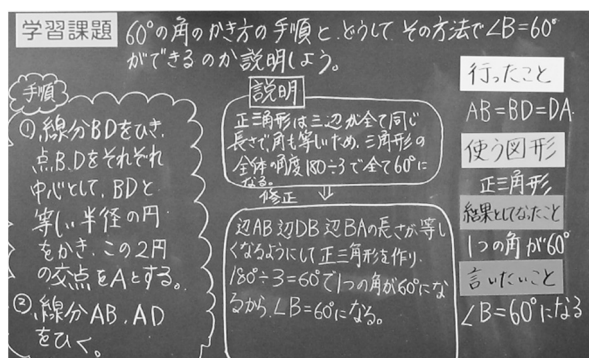 学習課題
60°の角のかき方の手順と、どうして、その方法で∠B=60°
ができるのか説明しよう。
手順
① 線分BDをひき、
点B,Dをそれぞれ
中心として、BDと
等しい半径の円
をかき、この2円
の交点をAとする。
② 線分AB、AD
をひく。
説明
正三角形は三辺が全て同じ
長さで角も等しいため、三角形の
全体の角度180÷3で全て60°に
なる。
修正 ⇓
辺AB 辺DB 辺BAの長さが、等し
くなるようにして正三角形を作り、
180°÷3=60°で1つの角が60°にな
るから、∠B=60°になる。
行ったこと
AB=BD=DA
使う図形
正三角形
結果としてなったこと
1つの角が60°
言いたいこと
∠B=60°になる